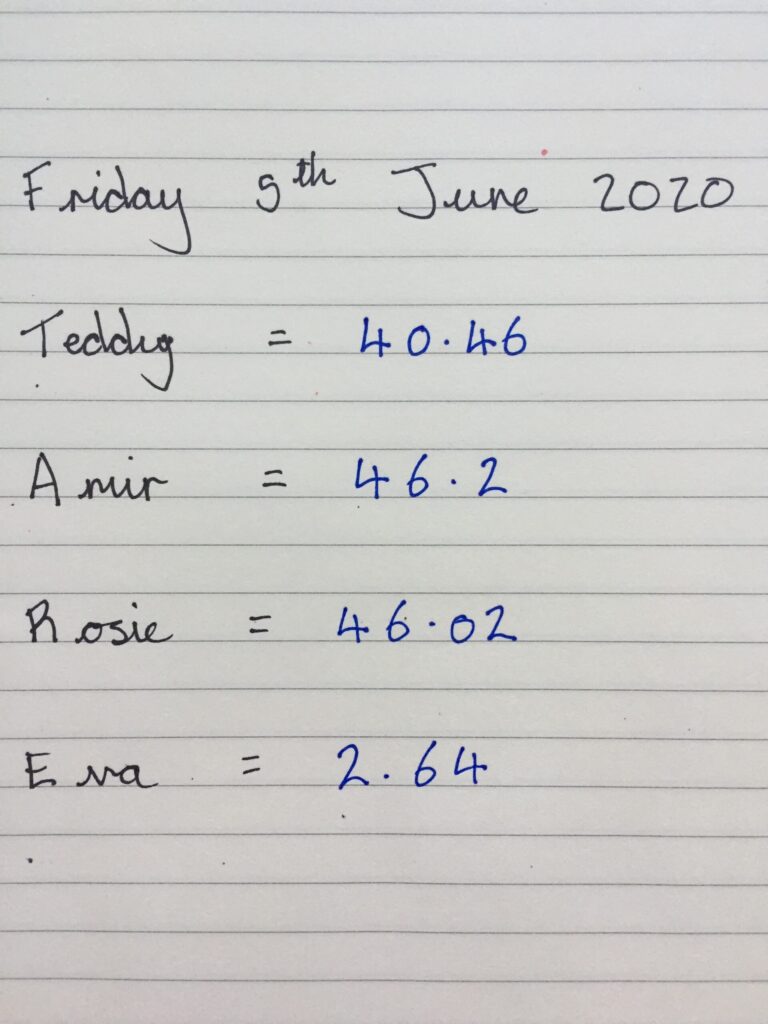 Friday 5th June 2020
Teddy = 40.46
Amir = 46.2
Rosie = 46.02
Eva = 2.64